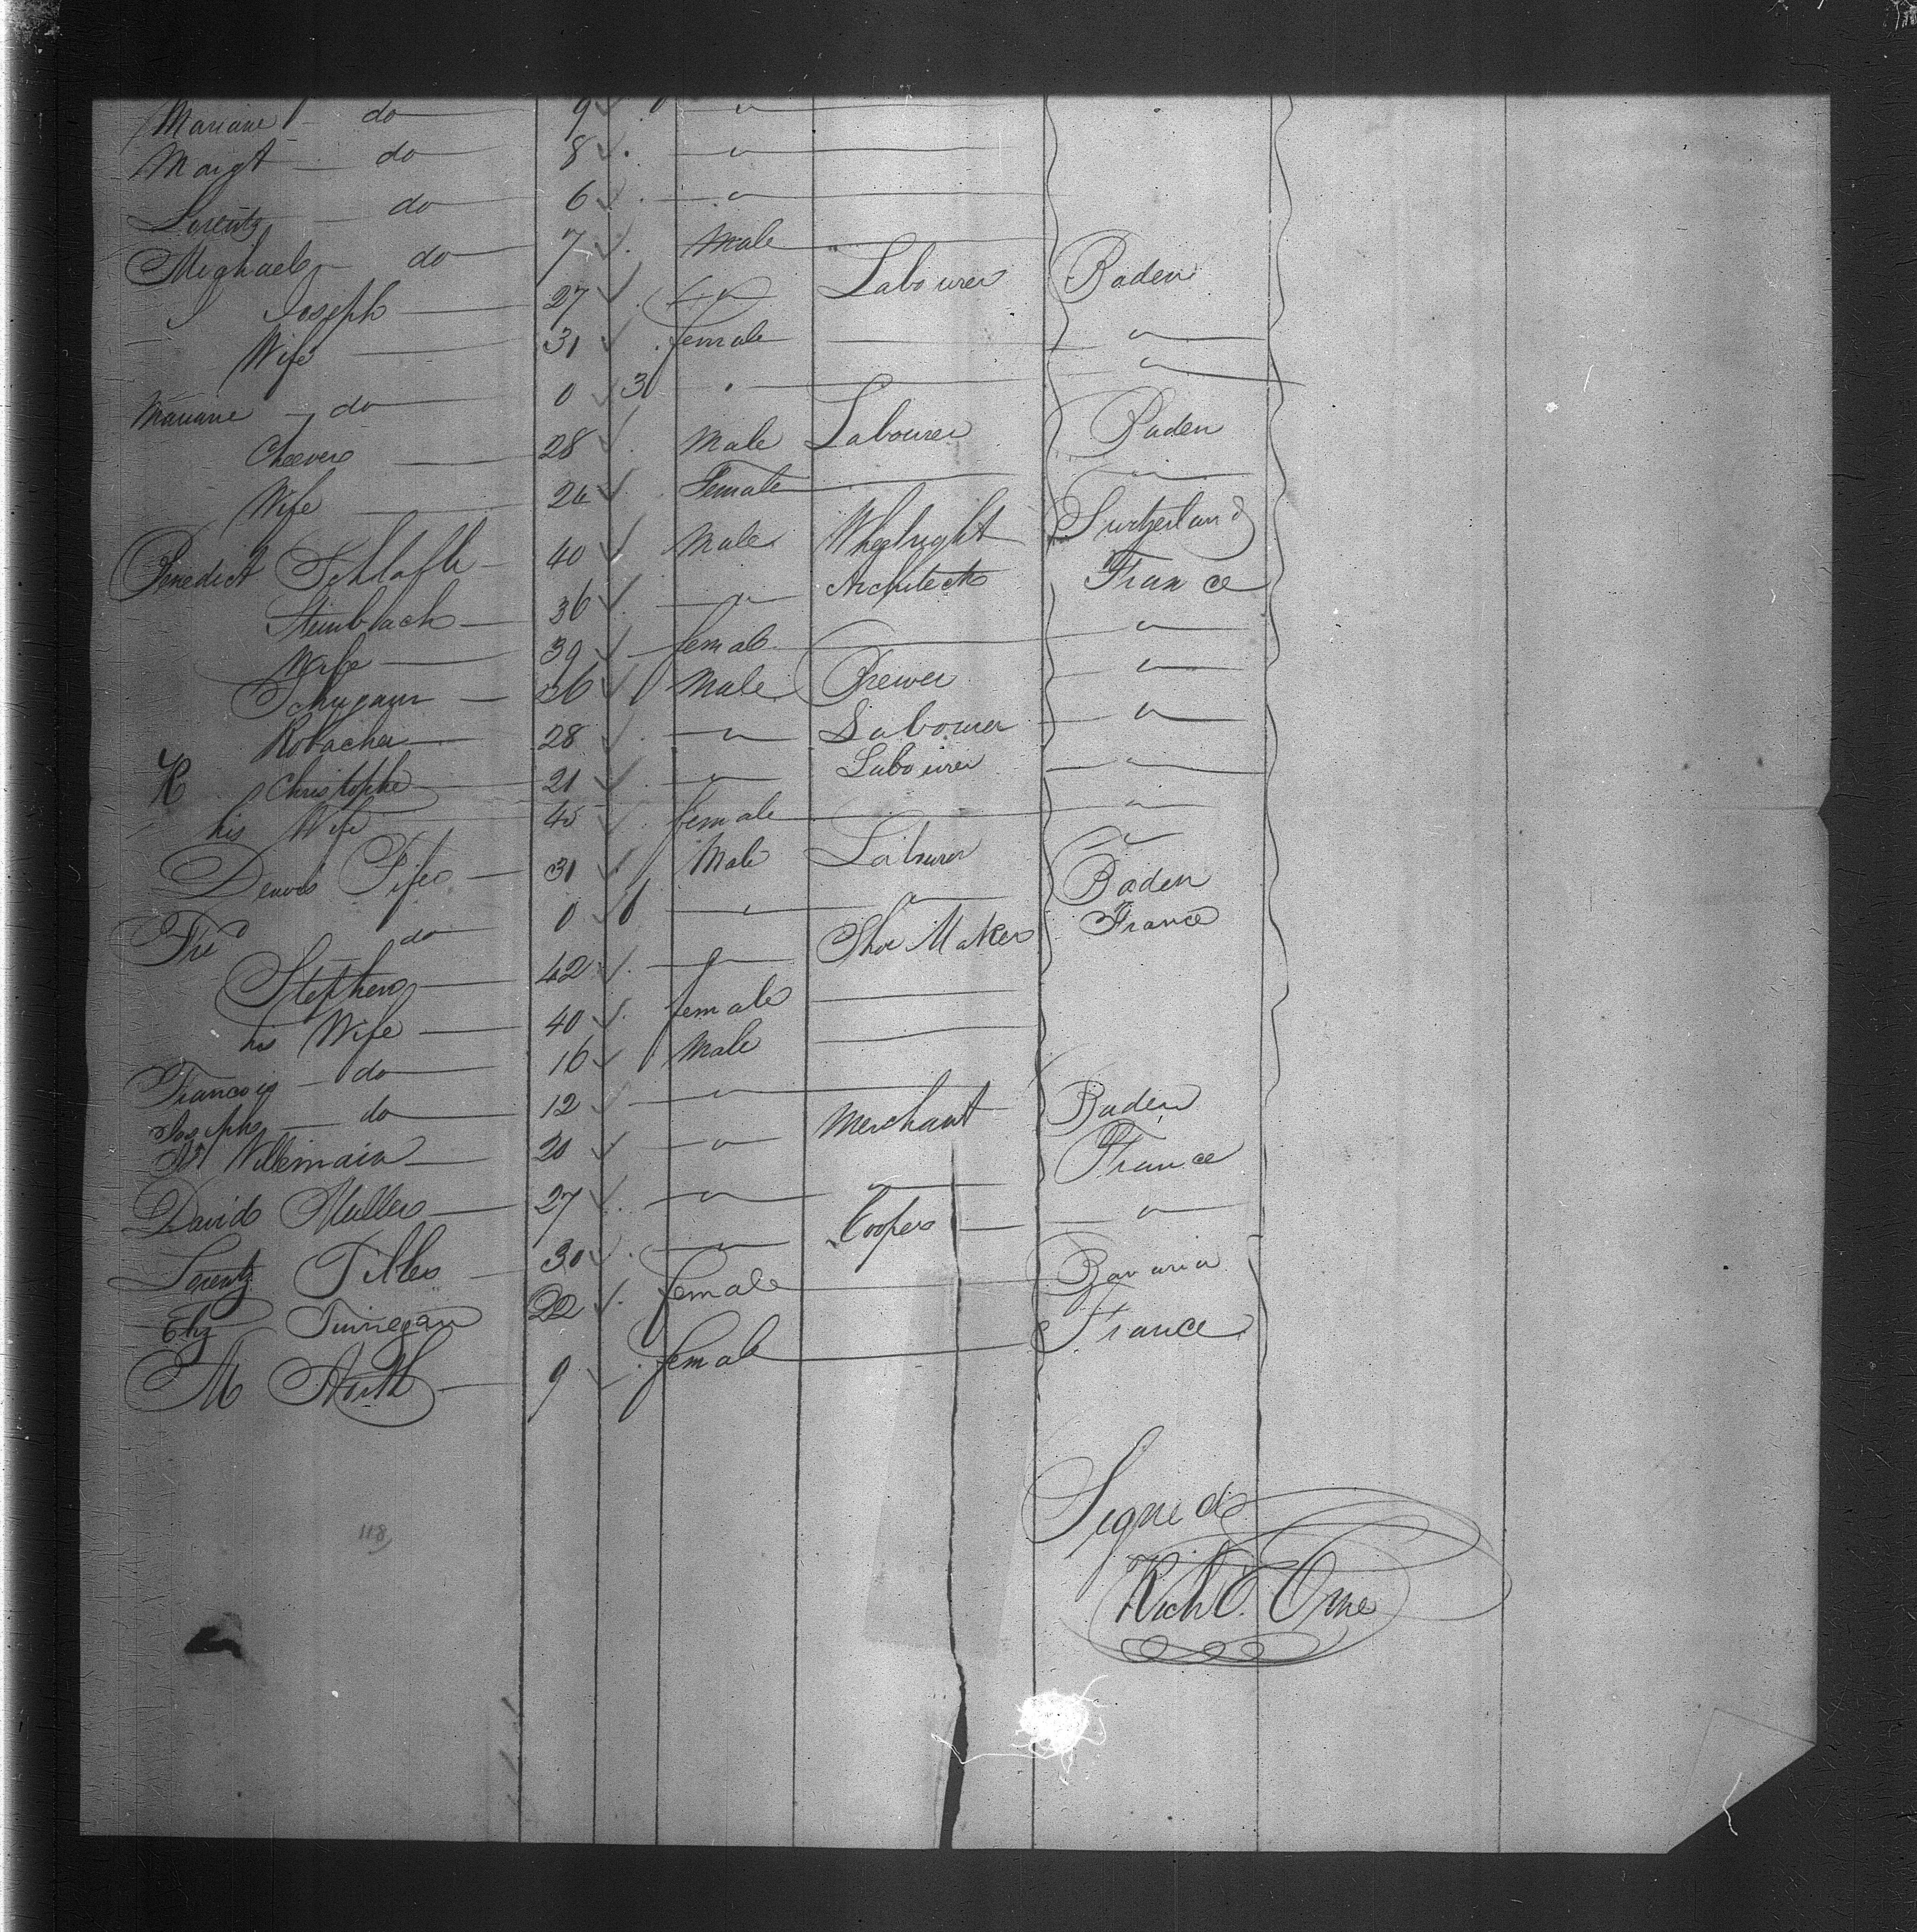 Mariane do 9 "
Margt do 8 "
Lorentz do 6 "
Mighael do 7 Male
Joseph 27 " Labourer Baden
Wife 31 female "
Mariane do 0 3 " "
Cheever 28 Male Labourer Baden
Wife 26 Female "
Benedict Schlafli 40 Male Whelright Switzerland
Steinbach 36 " Architect France
Wife 39 female "
36 Male Brewer "
Robacher 28 " Labourer "
Christophe 21 " Labourer "
his Wife 45 female "
Dennis Pifer 31 Male Labourer "
Fred do 0 6 " " Baden
Stephen 42 " Shoe Maker France
his Wife 40 female
Francois do 16 Male
Joseph do 12 "
Willemain 20 " Merchant Baden
David Muller 27 " " France
Lorentz Tiller 30 " Cooper "
Eliz Finnegan 22 female Bavaria
M 9 female France
118
Signed
Richd E. Orne